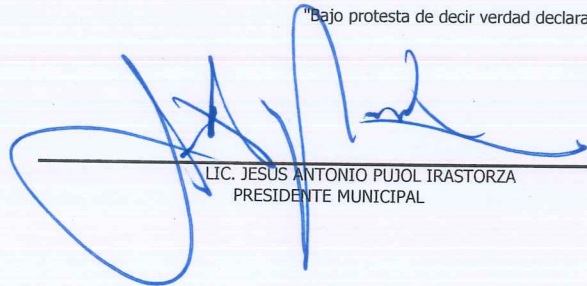 "Bajo protesta de decir verdad declara
LIC. JESÚS ANTONIO PUJOL IRASTORZA
PRESIDENTE MUNICIPAL